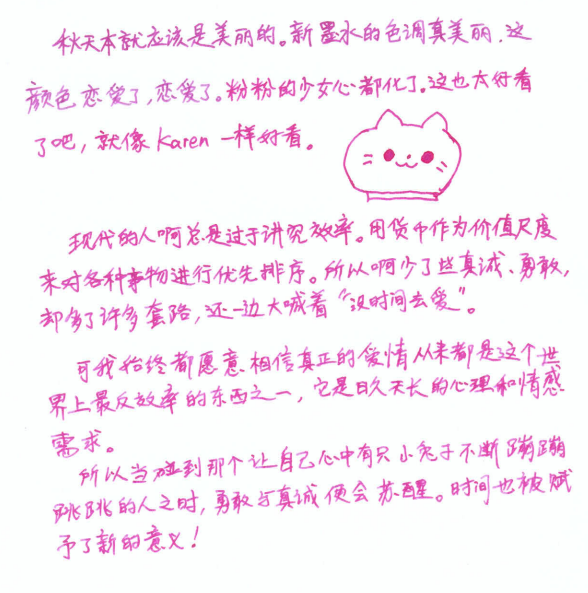 秋天本就应该是美丽的。新墨水的色调真美丽，这
颜色恋爱了，恋爱了。粉粉的少女心都化了。这也太好看
了吧，就像Karen一样好看。
现代的人啊总是过于讲究效率。用货币作为价值尺度
来对各种事物进行优先排序。所以啊少了些真诚、勇敢，
却多了许多套路，还一边大喊着“没时间去爱”。
可我始终都愿意相信真正的爱情从来都是这个世
界上最反效率的东西之一，它是日久天长的心理和情感
需求。
所以当碰到那个让自己心中有只小兔子不断蹦蹦
跳跳的人之时，勇敢与真诚便会苏醒。时间也被赋
予了新的意义！